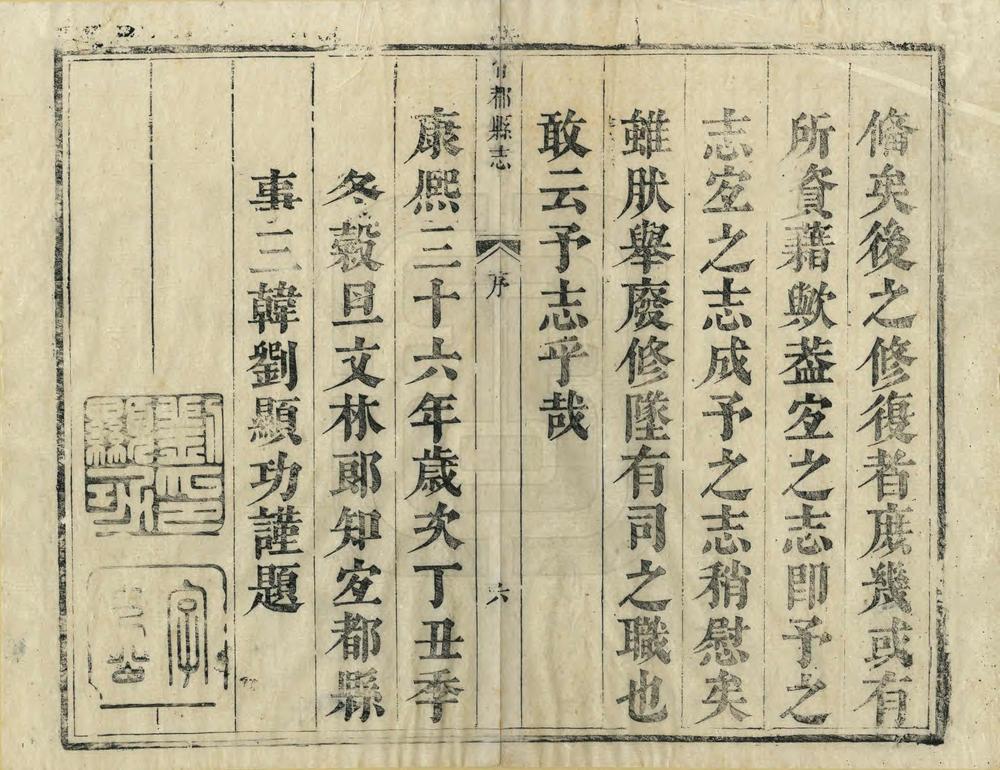 偹矣後之修復者庻幾或有
所資藉歟葢宐之志即予之
志宐之志成予之志稍慰矣
雖肰舉廢修墜有司之職也
敢云予志乎哉
都縣志
序
六
康熈三十六年歲次丁丑季
冬穀旦文林郎知宐都縣
事三韓劉顯功謹題